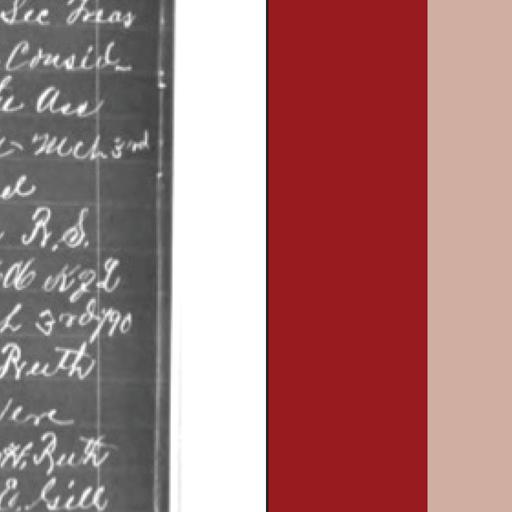 Sec Treas
Consid-
Ass
- Mch 3rd
R. S.
L 3rd/90
Ruth
Vere
H. Ruth
E. Gill